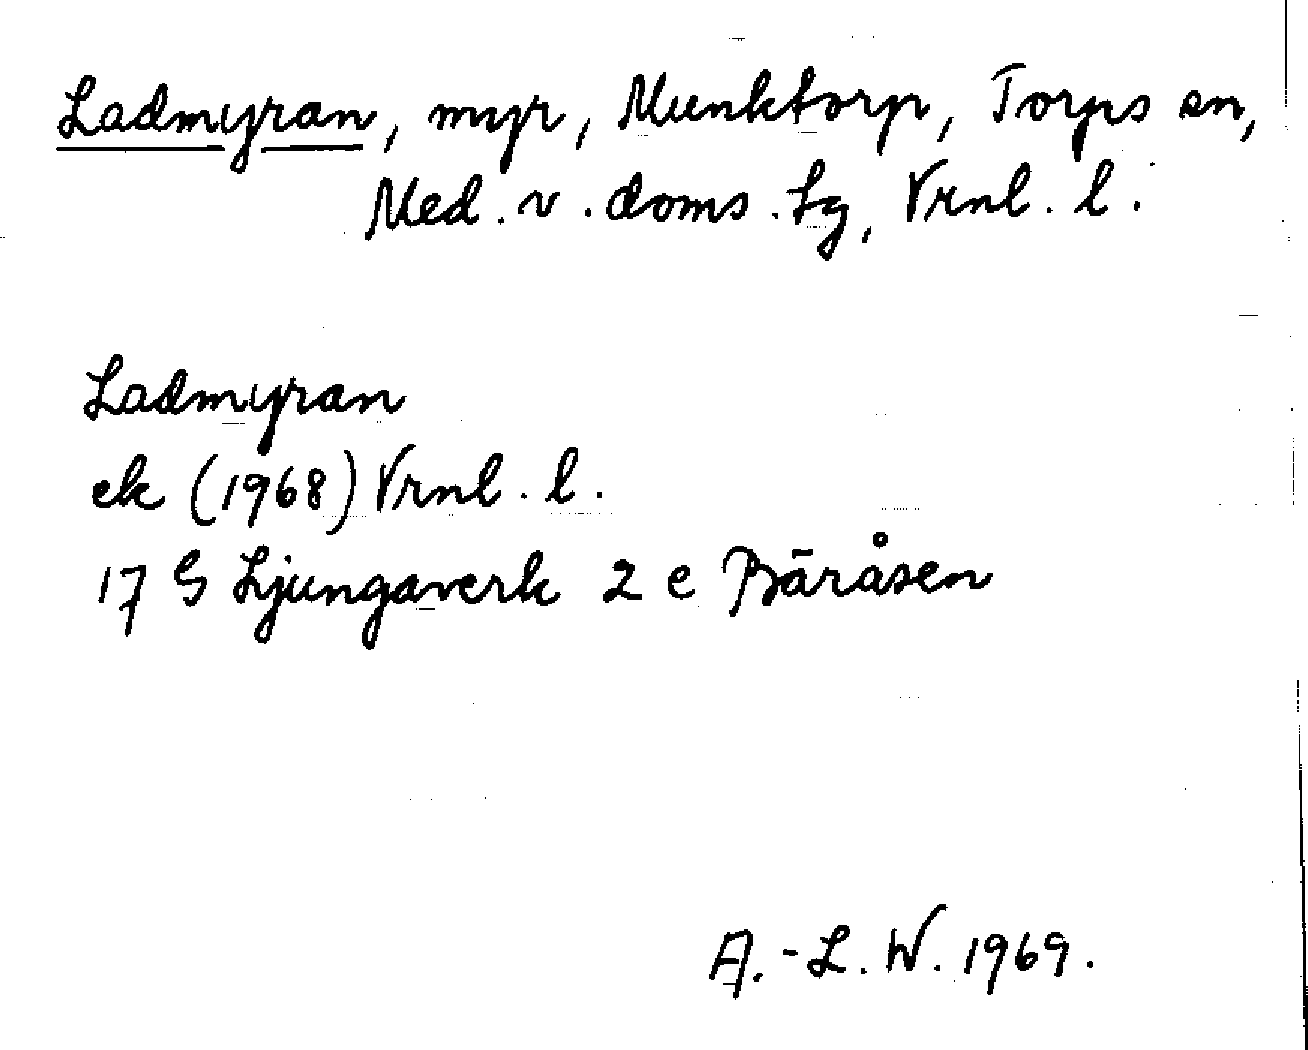 Ladmyran, myr, Munktorp, Torps sn,
Med. v. doms. tg, Vrnl. l.
Ladmyran
ek (1968) Vrnl. l.
17 G Ljungaverk 2 e Bäråsen
A.-L. W. 1969.